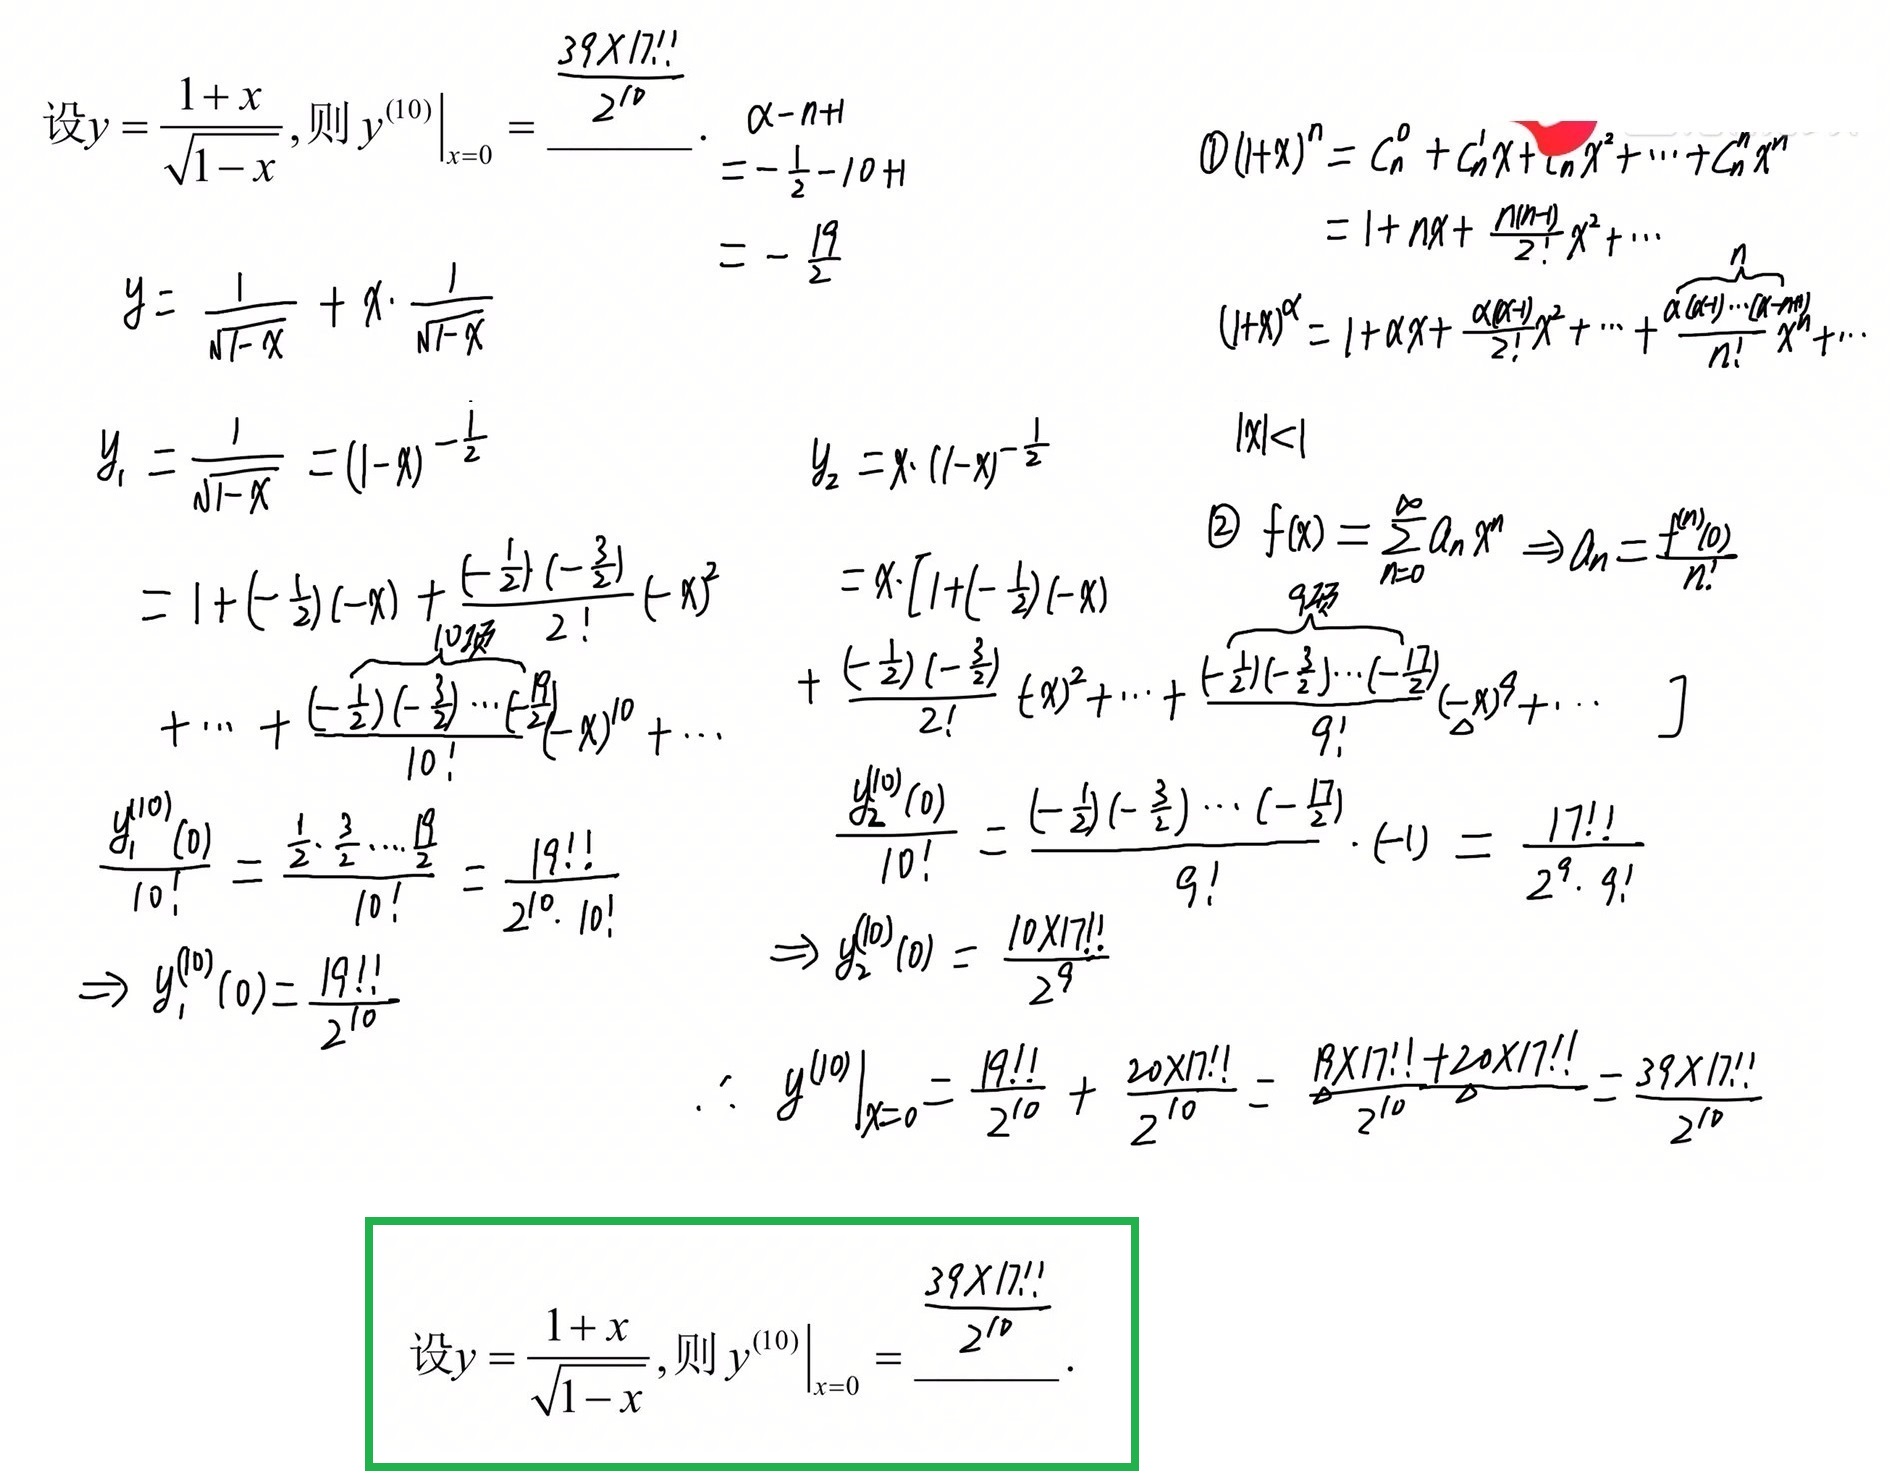 设y = \frac{1+x}{\sqrt{1-x}}, 则 y^{(10)}|_{x=0} = \frac{39×17!!}{2^{10}}.
α-n+1
= -\frac{1}{2}-10+1
= -\frac{19}{2}
①(1+x)^n = C_n^0 + C_n^1 x + C_n x^2 + ⋯ + C_n^n x^n
= 1+nx+\frac{n(n-1)}{2!}x^2+⋯
(1+x)^α = 1+αx+\frac{α(α-1)}{2!}x^2+⋯+\frac{\overbrace{α(α-1)⋯(α-n+1)}^{n}}{n!}x^n+⋯
|x|<1
② f(x) = \sum_{n=0}^{∞} a_n x^n ⇒ a_n = \frac{f^{(n)}(0)}{n!}
y = \frac{1}{\sqrt{1-x}} + x·\frac{1}{\sqrt{1-x}}
y_1 = \frac{1}{\sqrt{1-x}} = (1-x)^{-\frac{1}{2}}
= 1+(-\frac{1}{2})(-x)+\frac{(-\frac{1}{2})·(-\frac{3}{2})}{2!}(-x)^2
+⋯+\frac{\overbrace{(-\frac{1}{2})(-\frac{3}{2})⋯(-\frac{19}{2})}^{10项}}{10!}(-x)^{10}+⋯
\frac{y_1^{(10)}(0)}{10!} = \frac{\frac{1}{2}·\frac{3}{2}⋯\frac{19}{2}}{10!} = \frac{19!!}{2^{10}·10!}
⇒ y_1^{(10)}(0) = \frac{19!!}{2^{10}}
y_2 = x·(1-x)^{-\frac{1}{2}}
= x·[1+(-\frac{1}{2})(-x)
+\frac{(-\frac{1}{2})(-\frac{3}{2})}{2!}(-x)^2+⋯+\frac{\overbrace{(-\frac{1}{2})(-\frac{3}{2})⋯(-\frac{17}{2})}^{9项}}{9!}(-x)^9+⋯]
\frac{y_2^{(10)}(0)}{10!} = \frac{(-\frac{1}{2})(-\frac{3}{2})⋯(-\frac{17}{2})}{9!}·(-1) = \frac{17!!}{2^9·9!}
⇒ y_2^{(10)}(0) = \frac{10×17!!}{2^9}
∴ y^{(10)}|_{x=0} = \frac{19!!}{2^{10}} + \frac{20×17!!}{2^{10}} = \frac{19×17!!+20×17!!}{2^{10}} = \frac{39×17!!}{2^{10}}
设y = \frac{1+x}{\sqrt{1-x}}, 则 y^{(10)}|_{x=0} = \frac{39×17!!}{2^{10}}.